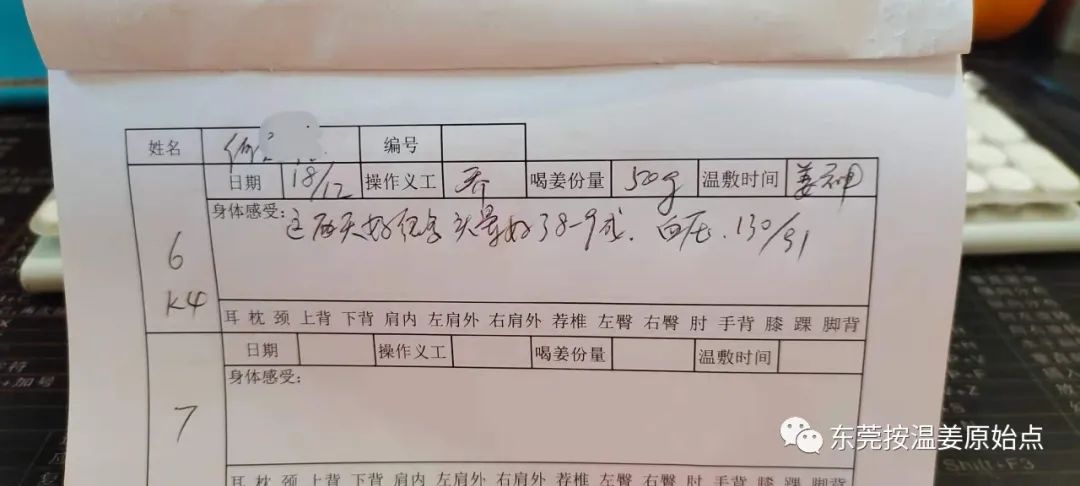 姓名 何 编号
日期 18/12 操作义工 喝姜份量 500g 温敷时间 姜
6
K4
身体感受: 这两天好很多 头晕好了8-9成. 血压. 130/91
耳 枕 颈 上背 下背 肩内 左肩外 右肩外 荐椎 左臀 右臀 肘 手背 膝 踝 脚背
日期 操作义工 喝姜份量 温敷时间
7
身体感受:
耳 枕 颈 上背 下背 肩内 左肩外 右肩外 荐椎 左臀 右臀 肘 手背 膝 踝 脚背
东莞按温姜原始点
Shift+F3
+加号